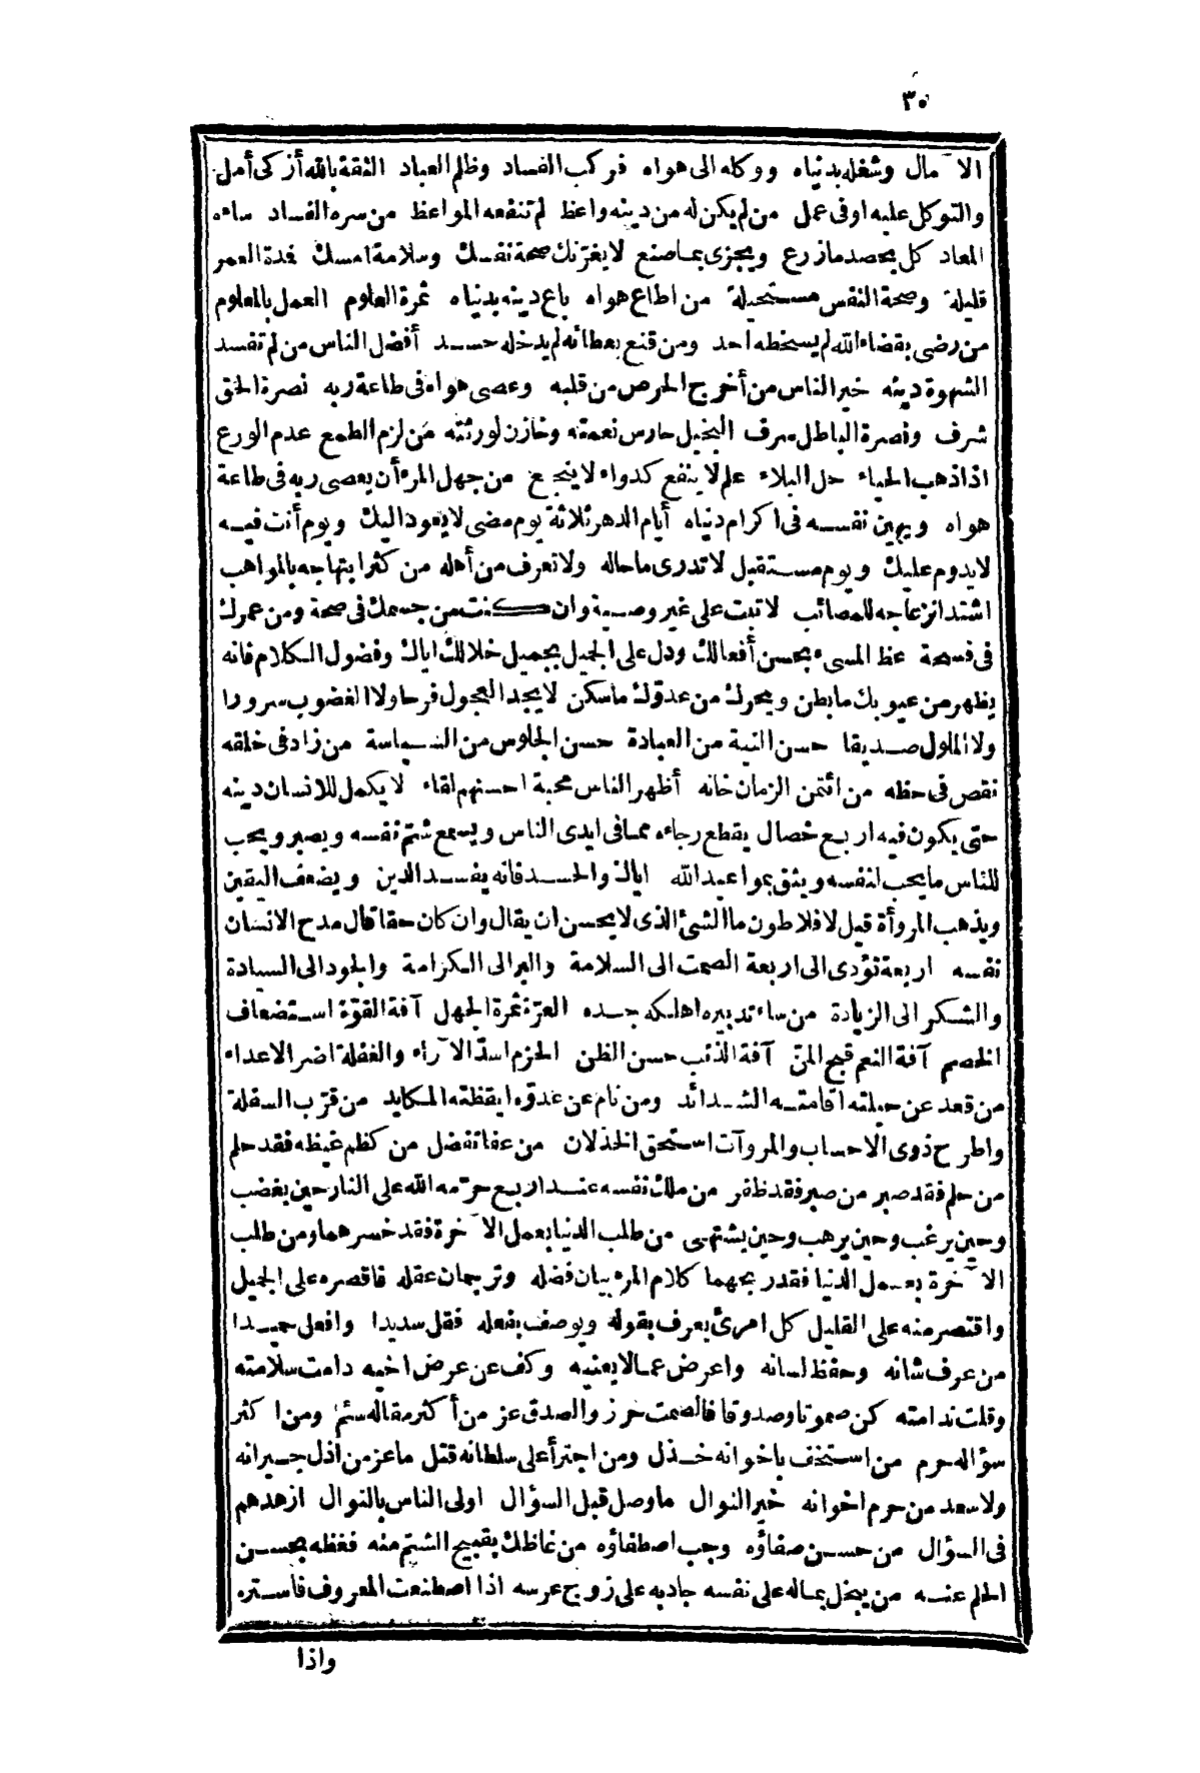 ٣٠
الآمال وشغله بدنياه ووكله الى هواه فركب الفساد وظلم العباد الثقة بالله أزكى أمل
والتوكل عليه اوفى عمل من لم يكن له من دينه واعظ لم تنفعه المواعظ من سره الفساد ساءه
المعاد كل يحصد ما زرع ويجزى بما صنع لا يغرّنك صحة نفسك وسلامة امسك فدة العمر
قليلة وصحة النفس مستحيلة من اطاع هواه باع دينه بدنياه ثمرة العلوم العمل بالمعلوم
من رضى بقضاء الله لم يسخطه احد ومن قنع بعطائه لم يدخله حسد أفضل الناس من لم تفسد
الشهوة دينه خير الناس من أخرج الحرص من قلبه وعصى هواه فى طاعة ربه نصرة الحق
شرف ونصرة الباطل سرف البخيل حارس نعمته وخازن لورثته من لزم الطمع عدم الورع
اذا ذهب الحياء حل البلاء علم لا ينفع كدواء لا ينجع من جهل المرء أن يعصى ربه فى طاعة
هواه ويهين نفسه فى اكرام دنياه أيام الدهر ثلاثة يوم مضى لا يعود اليك ويوم أنت فيه
لا يدوم عليك ويوم مستقبل لا تدرى ما حاله ولا تعرف من أهله من كثر ابتهاجه بالمواهب
اشتد انزعاجه للمصائب لا تبت على غير وصية وان كنت من جسمك فى صحة ومن عمرك
فى فسحة عظ المسىء بحسن أفعالك ودل على الجميل بجميل خلالك اياك وفضول الكلام فانه
يظهر من عيوبك ما بطن ويحرك من عدوّك ما سكن لا يجد العجول فرحا ولا الغضوب سرورا
ولا الملول صديقا حسن النية من العبادة حسن الجلوس من السياسة من زاد فى خلقه
نقص فى حظه من ائتمن الزمان خانه أظهر الناس محبة احسنهم لقاء لا يكمل للانسان دينه
حتى يكون فيه اربع خصال يقطع رجاءه مما فى ايدى الناس ويسمع شتم نفسه ويصبر ويحب
للناس ما يحب لنفسه ويثق بمواعيد الله اياك والحسد فانه يفسد الدين ويضعف اليقين
ويذهب المروأة قيل لافلاطون ما الشئ الذى لا يحسن ان يقال وان كان حقا قال مدح الانسان
نفسه اربعة تؤدى الى اربعة الصمت الى السلامة والبر الى الكرامة والجود الى السيادة
والشكر الى الزيادة من ساء تدبيره اهلكه جده العزة ثمرة الجهل آفة القوّة استضعاف
الخصم آفة النعم قبح المنّ آفة الذئب حسن الظن الحزم اسدّ الآراء والغفلة اضر الاعداء
من قعد عن حيلته اقامته الشدائد ومن نام عن عدوّه ايقظته المكايد من قرّب السفلة
واطرح ذوى الاحساب والمروآت استحق الخذلان من عفا تفضل من كظم غيظه فقد حلم
من حلم فقد صبر من صبر فقد ظفر من ملك نفسه عند اربع حرّمه الله على النار حين يغضب
وحين يرغب وحين يرهب وحين يشتهى من طلب الدنيا بعمل الآخرة فقد خسرهما ومن طلب
الآخرة بعمل الدنيا فقد ربحهما كلام المرء بيان فضله وترجمان عقله فاقصره على الجميل
واقتصر منه على القليل كل امرئ يعرف بقوله ويوصف بفعله فقل سديدا وافعل حميدا
من عرف شانه وحفظ لسانه واعرض عما لا يعنيه وكف عن عرض اخيه دامت سلامته
وقلت ندامته كن صموتا وصدوقا فالصمت حرز والصدق عز من أكثر مقاله سئم ومن اكثر
سؤاله حرم من استخف باخوانه خذل ومن اجترأ على سلطانه قتل ما عز من أذل جيرانه
ولا سعد من حرم اخوانه خير النوال ما وصل قبل السؤال اولى الناس بالنوال ازهدهم
فى السؤال من حسن صفاؤه وجب اصطفاؤه من غاظك بقبيح الشتم منه فغظه بحسن
الحلم عنه من يبخل بماله على نفسه جاد به على زوج عرسه اذا اصطنعت المعروف فاستره
واذا